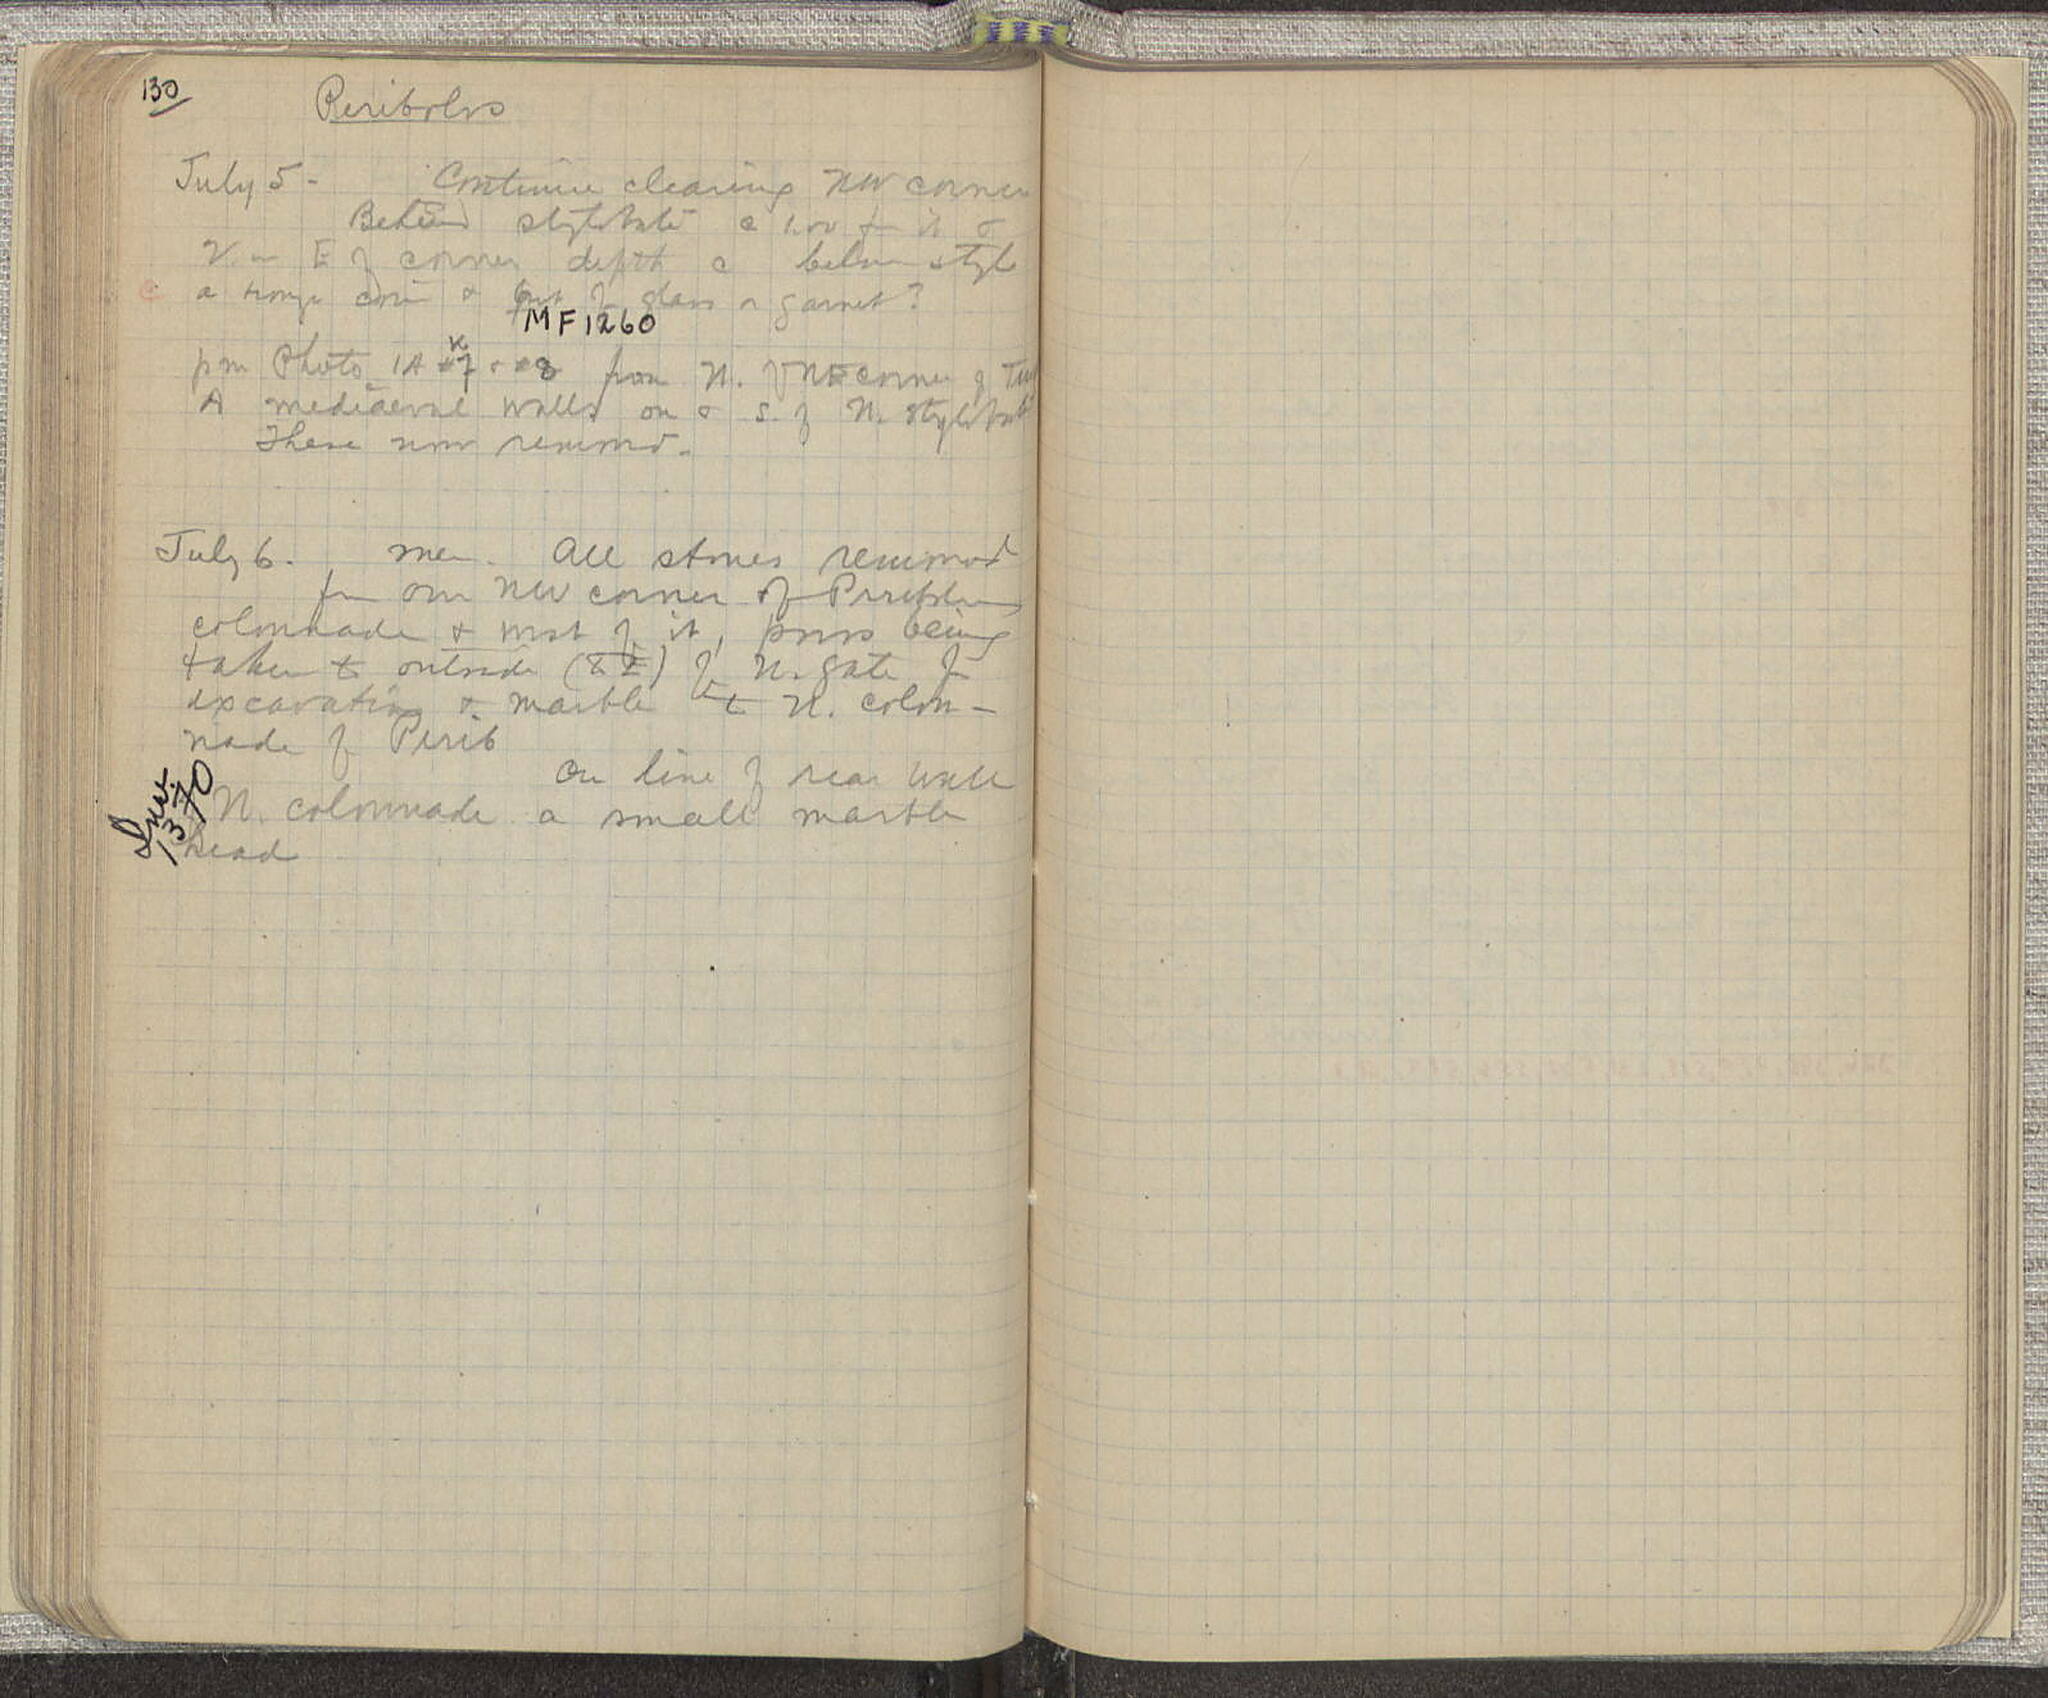 130
Peribolos
July 5 - Continue clearing NW corner
Behind stylobate c 1.00 fm it &
E of corner depth c below style
C a bronze coin & bit of glass or garnet?
MF 1260
pm Photo 1A #7 & #8 from N. of NE corner of
A mediaeval walls on & S. of N. stylobate
These now removed.
July 6. men. All stones removed
fm our NW corner of Peribolos
colonnade & most of it, poros being
taken to outside (& E) of N. gate of
excavation & marble to N. colon-
nade of Perib
On line of rear wall
N. colonnade a small marble
head
Inv. 1370